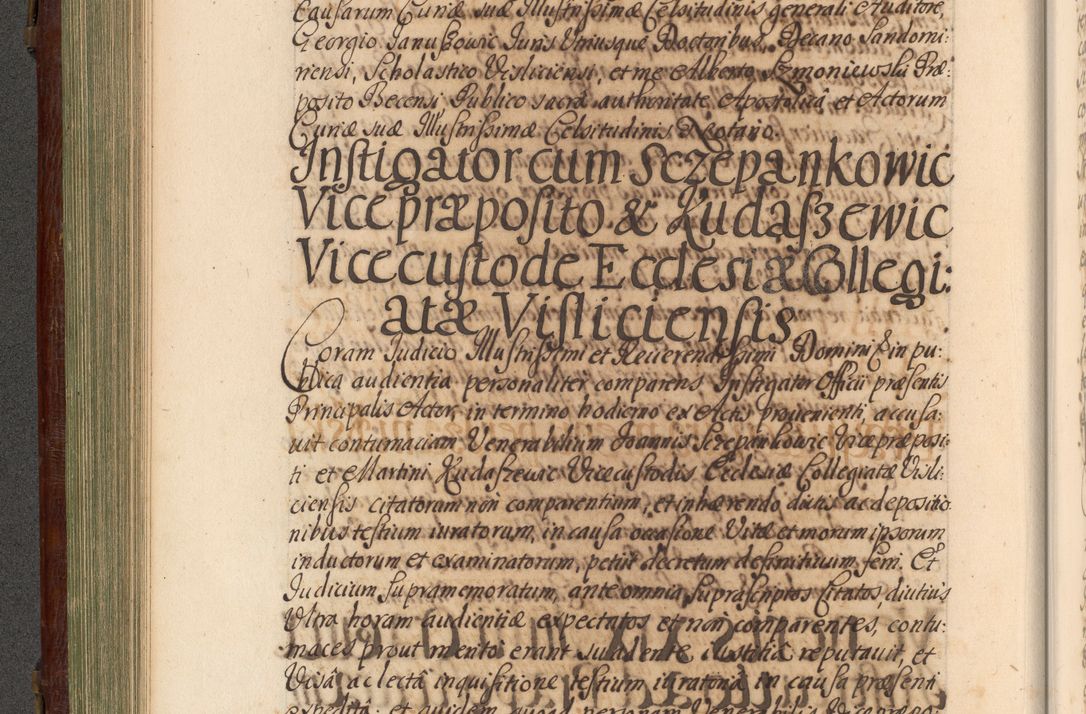 Causarum Curiæ suæ Illustrissimæ Celsitudinis generali Auditore,
Georgio Januszowic Juris Utriusque Doctoribus, Decano Sandomi:
riensi, Scholastico Visliciensi, et me Alberto Szmoniewski Præ:
posito Becensi Publico sacrâ authoritate Apostolicâ et Actorum
Curiæ suæ Illustrissimæ Celsitudinis Notario.
Instigator cum Sczepankowic
Vicepræposito & Kudaszewic
Vicecustode Ecclesiæ Collegi:
atæ Visliciensis
Coram Judicio Illustrissimi et Reverendissimi Domini & in pu:
blica audientia personaliter comparens Instigator Officii præsentis
Principalis Actor, in termino hodierno ex Actis provenienti, accusa:
vit contumaciam Venerabilium Joannis Sczepankowic Vicepræposi:
ti et Martini Kudaszewic Vicecustodis Ecclesiæ Collegiatæ Visli:
ciensis citatorum non comparentium, et inhærendo dictis ac depositio:
nibus testium iuratorum, in causa occasione Vitæ et morum ipsorum
inductorum et examinatorum, petiit decretum definitivum feri. Et
Judicium supramemoratum, ante omnia suprascriptos Citatos, diutius
Ultra horam audientiæ expectatos et non comparentes, contu:
maces prout merito erant suadente iustitiâ reputavit, et
Visâ ac lectâ inquisitione testium iuratoria in causa præsenti
expeditâ: et quidem quoad personam Venerabilis Vicepræpo: